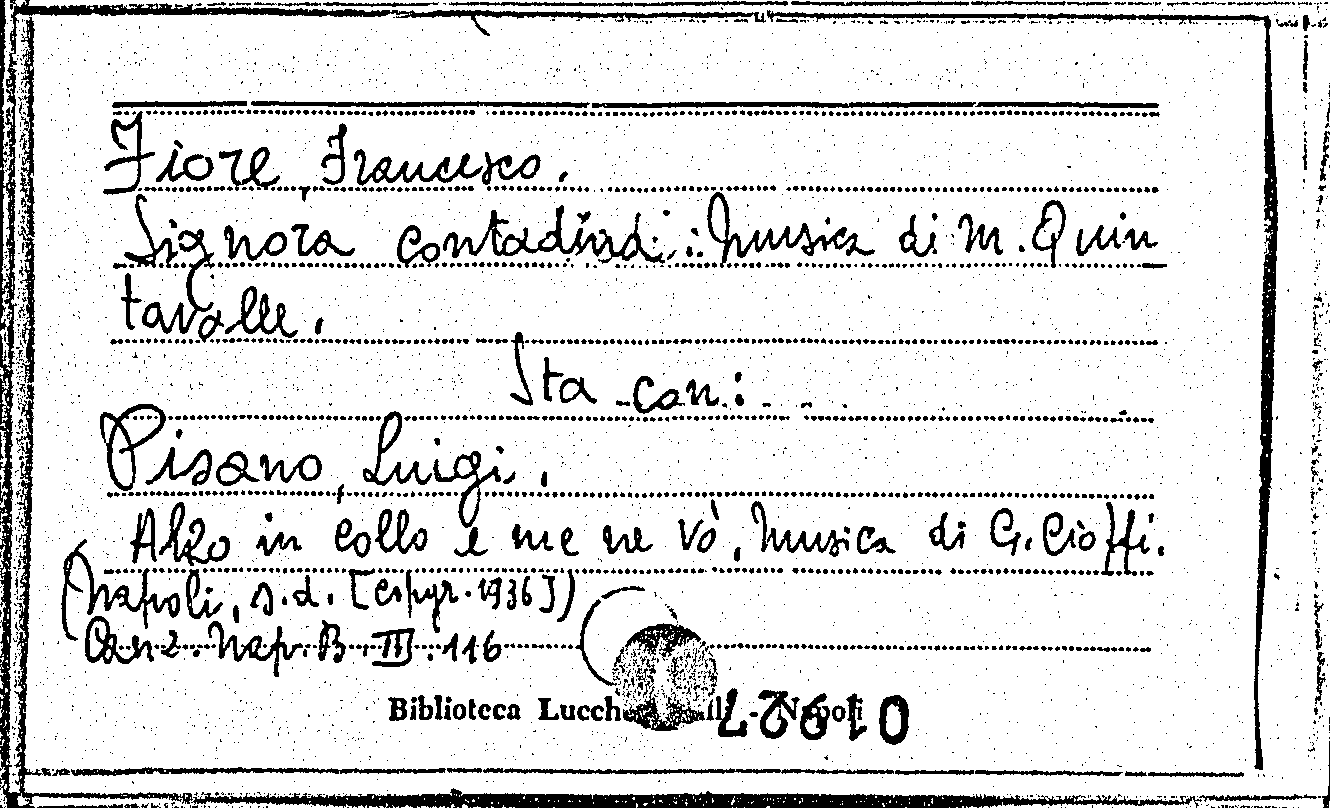 Fiore, Francesco.
Signora contadina: Musica di M. Quin
tavalle.
Sta con:
Pisano, Luigi.
Alzo in collo e me ne vò, Musica di G. Cioffi.
(Napoli, s.d. [copyr. 1936])
Canz. Nap. B. III. 116
Biblioteca - Napoli